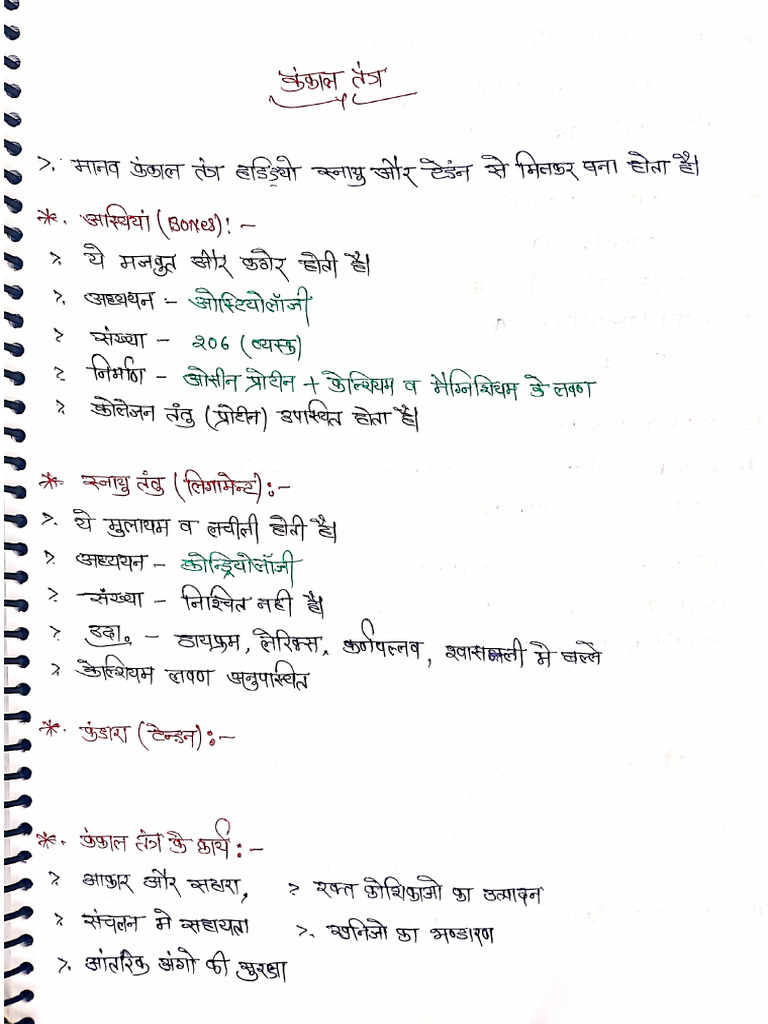 कंकाल तंत्र
>. मानव कंकाल तंत्र हड्डियो स्नायु और टेडंन से मिलकर बना होता है।
*. अस्थियां (Bones):-
> ये मजबुत और कठोर होती है।
>. अध्ययन - ओस्टियोलॉजी
> संख्या - 206 (व्यस्क)
> निर्माण - ओसीन प्रोटीन + केल्शियम व मैग्निशियम के लवण
> कोलेजन तंतु (प्रोटीन) उपस्थित होता है।
* स्नायु तंतु (लिगामेन्ट):-
>. ये मुलायम व लचीली होती है।
> अध्ययन - कोन्ड्रियोलॉजी
> संख्या - निश्चित नही है।
> उदा. - डायफ्रम, लेरिंक्स, कर्णपल्लव, श्वासनली मे छल्ले
> केल्शियम लवण अनुपास्थित
*. कुंडारा (टेन्डन):-
*. कंकाल तंत्र के कार्य:-
> आकार और सहारा, > रक्त कोशिकाओ का उत्पादन
> संचलन मे सहायता >. खनिजो का भण्डारण
>. आंतरिक अंगो की सुरक्षा